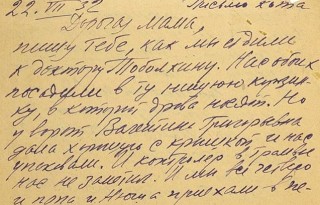 22. VII 32 Письмо кота
Дорогая Мама,
пишу Тебе, как мы ездили
к доктору Тоболкину. Нас обоих
посадили в ту нишую
ку, в которой дрова носят. Но
у ворот Валентина Григорьевна
дала с крышкой и нас
упихали. И контролер в трамвае
нас не заметил. И мы все четверо
и папа и Нюша приехали в